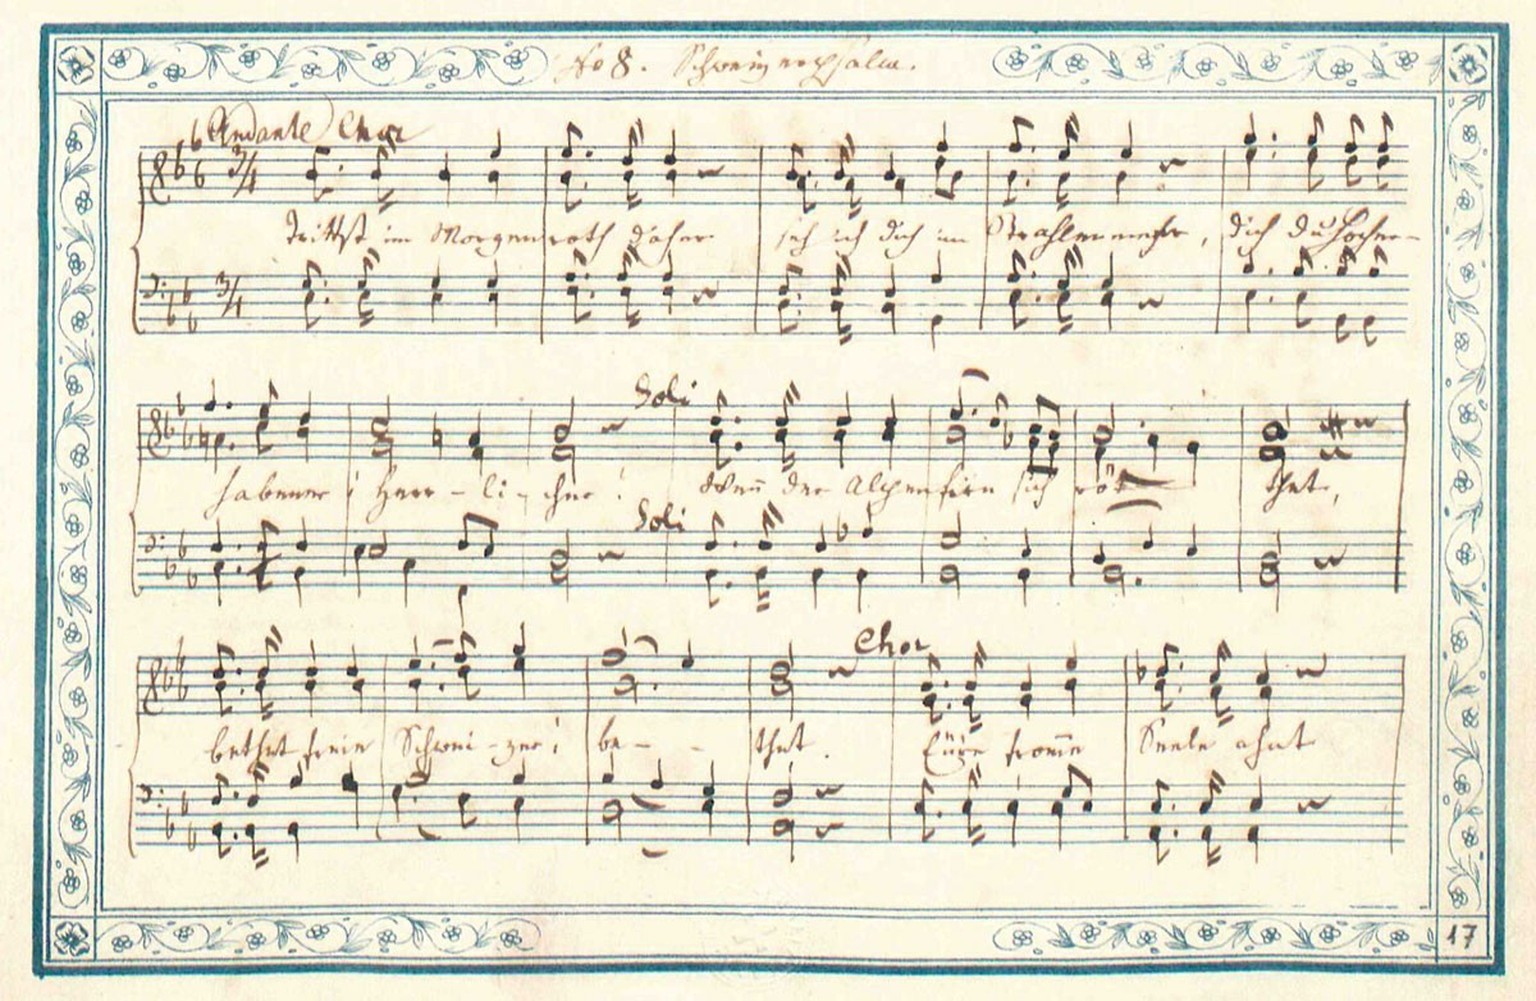 No 8. Schweizerpsalm.
Andante Chor
3/4
Trittst im Morgenroth daher seh ich dich im Strahlenmeer, dich du Hocher-
3/4
Soli
habener, Herr-li-cher! Wenn der Alpenfirn sich röthet,
Soli
Chor
bethet freie Schwei-zer, be--thet. Eüre from̅e Seele ahnt
17